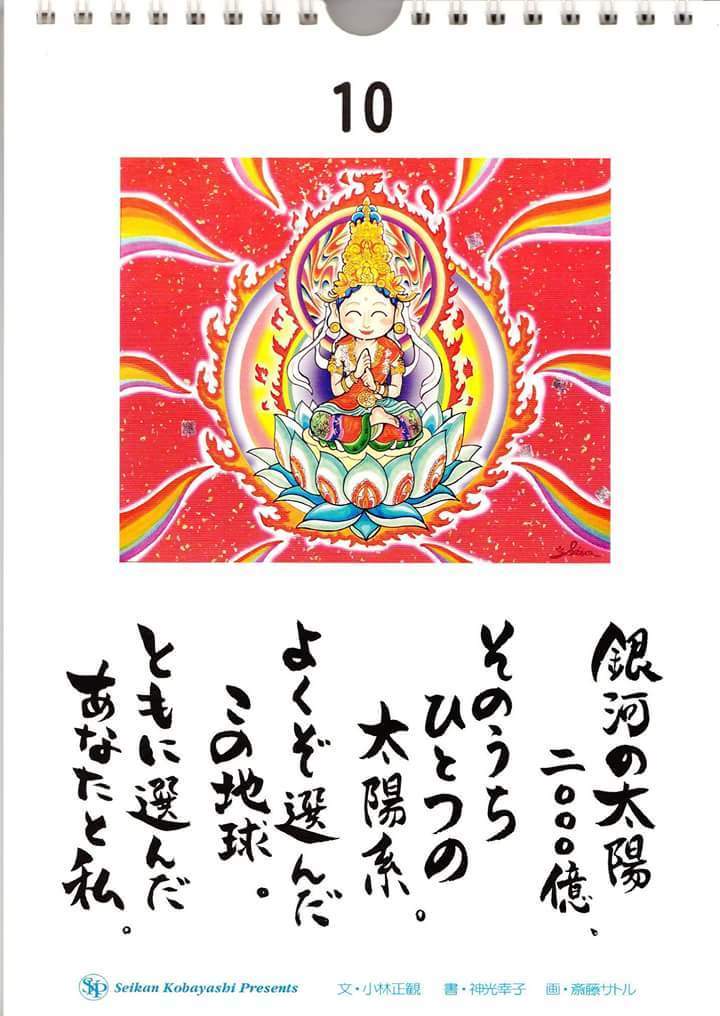 10
銀河の太陽
二〇〇〇億、
そのうち
ひとつの
太陽系。
よくぞ選んだ
この地球。
ともに選んだ
あなたと私。
SKP Seikan Kobayashi Presents
文・小林正観 書・神光幸子 画・斎藤サトル